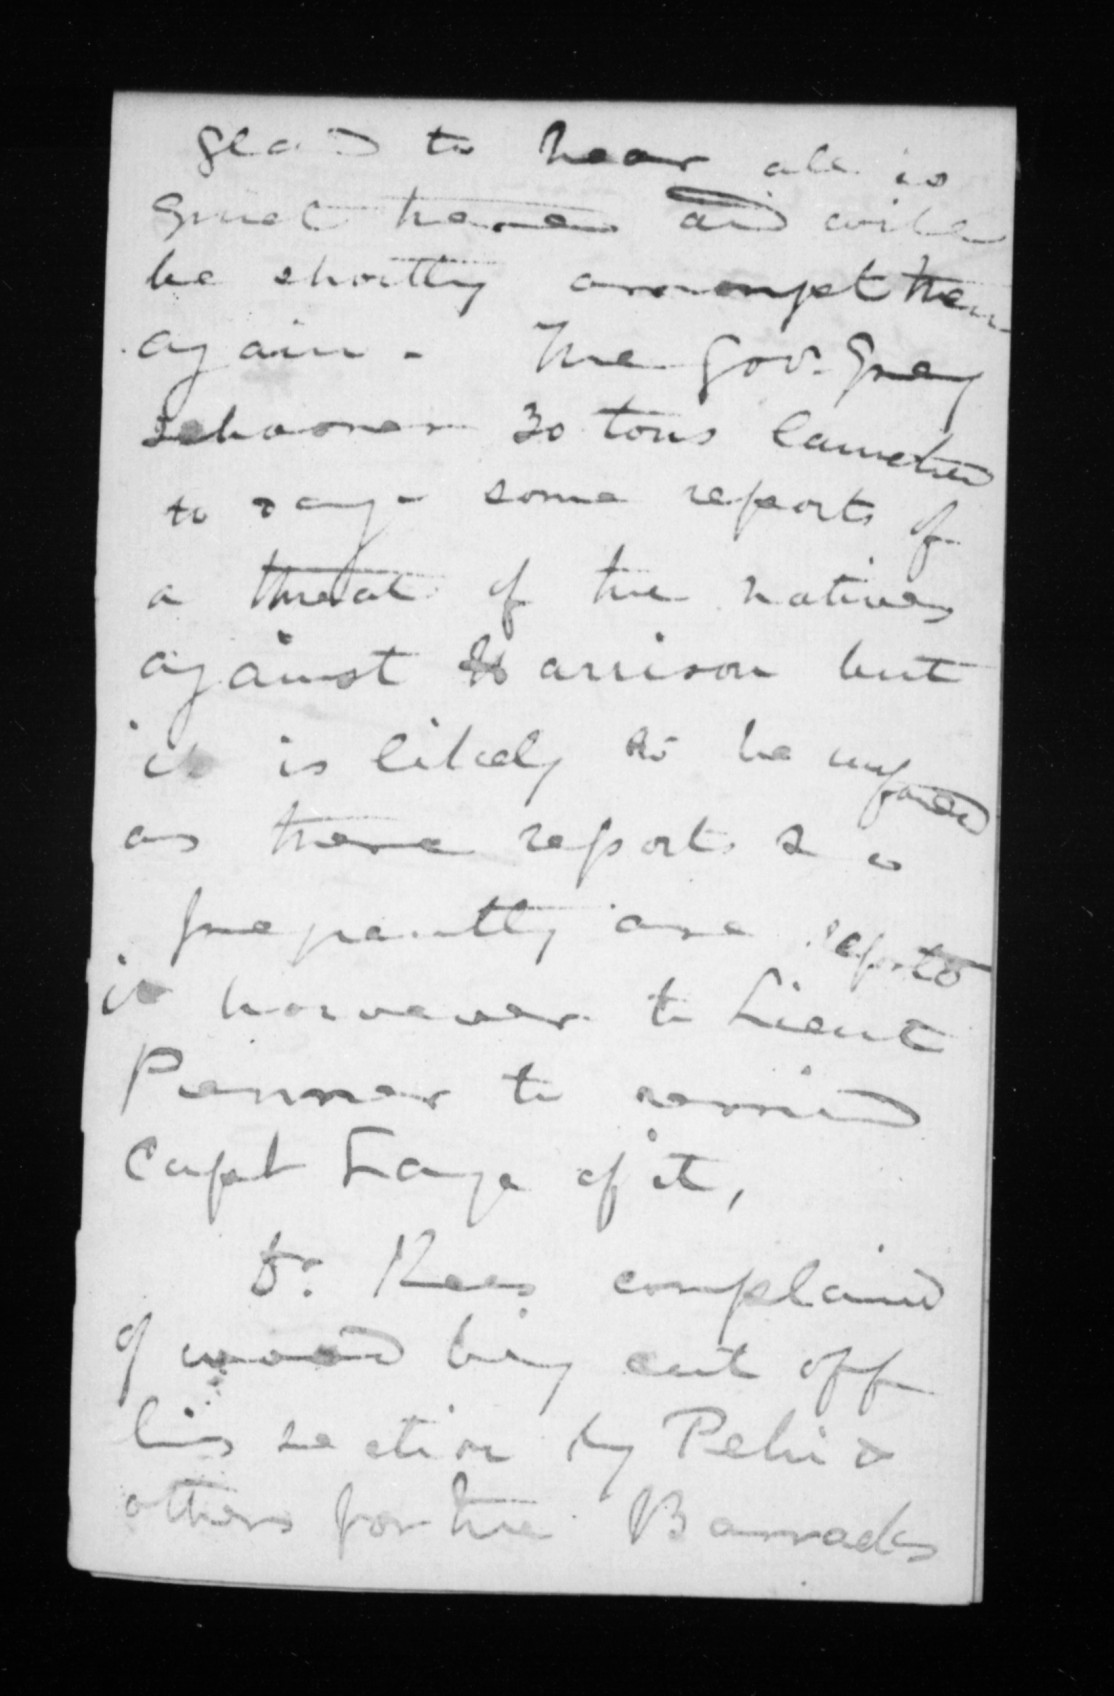 glad to hear all is
quiet there and will
be shortly amongst them
again - The Gov. Grey
schooner 30 tons launched
to day - some reports of
a threat of the natives
against Harrison but
it is likely to be unfound
as these reports so
frequently are reported
it however to Lieut
Penner to remind
Capt Laye of it,
Dr. Rees complained
of wood being cut off
his section by Pehi &
others for the Barracks